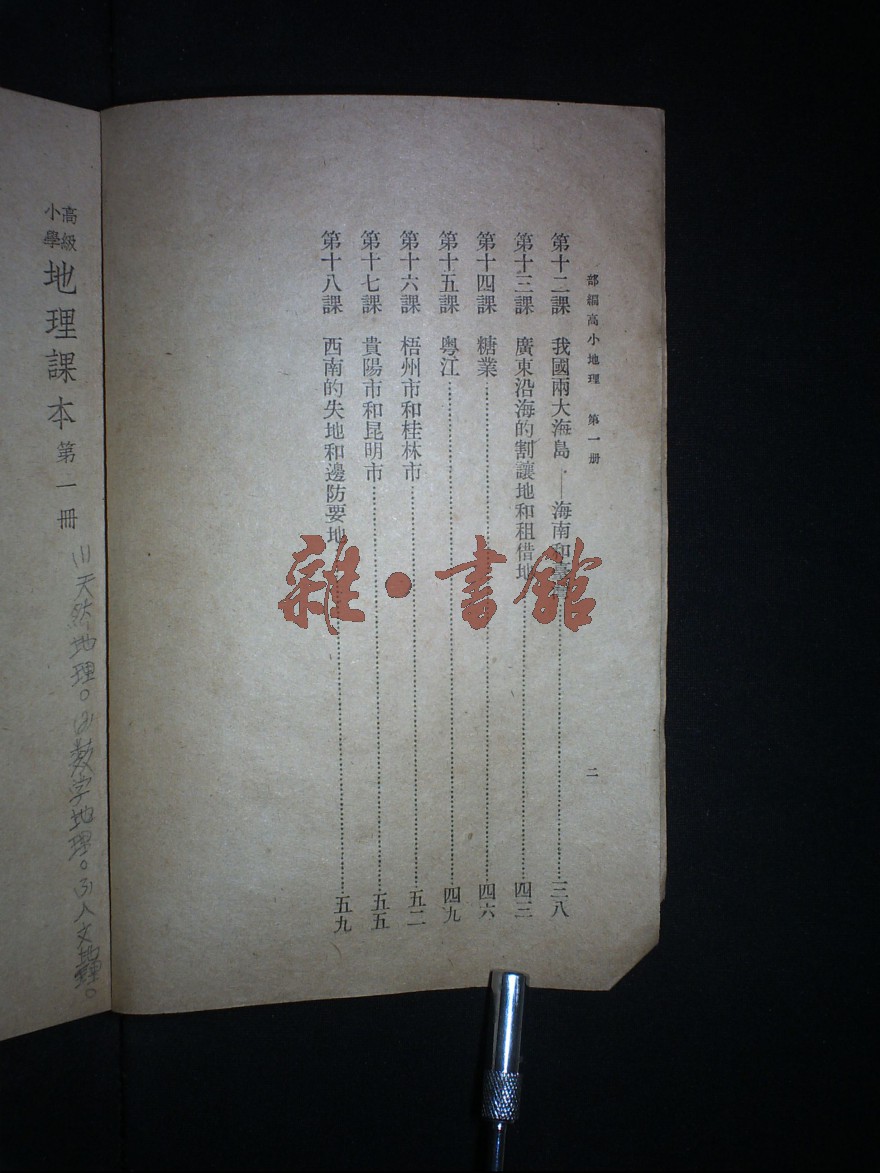 部編高小地理 第一册
二
第十二課 我國兩大海島——海南和臺灣……三八
第十三課 廣東沿海的割讓地和租借地……四三
第十四課 糖業……四六
第十五課 粵江……四九
第十六課 梧州市和桂林市……五二
第十七課 貴陽市和昆明市……五五
第十八課 西南的失地和邊防要地……五九
高級小學 地理課本 第一冊
(1)天然地理。(2)数字地理。(3)人文地理。
雜·書館